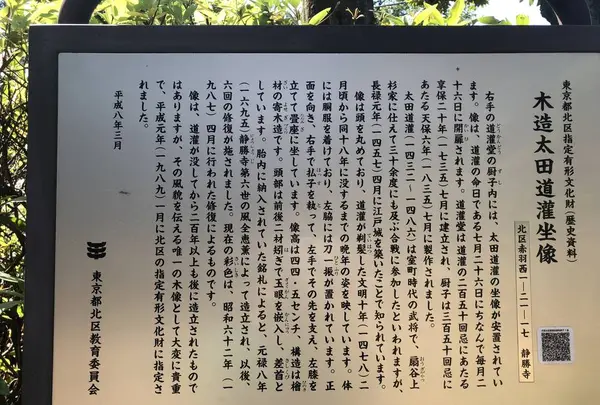 東京都北区指定有形文化財(歴史資料)
木造太田道灌坐像
北区赤羽西一-二一-一七 静勝寺
右手の道灌堂の厨子内には、太田道灌の坐像が安置されてい
ます。像は、道灌の命日である七月二十六日にちなんで毎月二
十六日に開扉されます。道灌堂は道灌の二百五十回忌にあたる
享保二十年(一七三五)七月に建立され、厨子は三百五十回忌に
あたる天保六年(一八三五)七月に製作されました。
太田道灌(一四三二-一四八六)は室町時代の武将で、扇谷上
杉家に仕えて三十余度にも及ぶ合戦に参加したといわれますが、
長禄元年(一四五七)四月に江戸城を築いたことで知られています。
像は頭を丸めており、道灌が剃髪した文明十年(一四七八)二
月頃から同十八年に没するまでの晩年の姿を映しています。体
には胴服を着けており、左脇には刀一振が置かれています。正
面を向き、右手で払子を執って、左手でその先を支え、左膝を
立てて畳座に坐しています。像高は四四・五センチ、構造は檜
材の寄木造です。頭部は前後二材矧ぎで玉眼を嵌入し、差首と
しています。胎内に納入されていた銘札によると、元禄八年
(一六九五)静勝寺第六世の風全恵薫によって造立され、以後、
六回の修復が施されました。現在の彩色は、昭和六十二年(一
九八七)四月に行われた修復によるものです。
像は、道灌が没してから二百年以上も後に造立されたもので
はありますが、その風貌を伝える唯一の木像として大変に貴重
で、平成元年(一九八九)一月に北区の指定有形文化財に指定さ
れました。
平成八年三月
東京都北区教育委員会